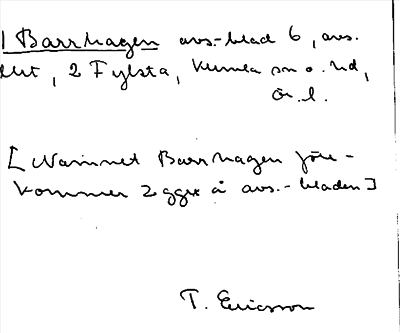 1 Barrhagen avs.-blad 6, avs.
utt, 2 Fylsta, Kumla sn o. hd,
Ör. l.
[Namnet Barrhagen före-
kommer 2 ggr å avs.-bladen]
T. Ericsson